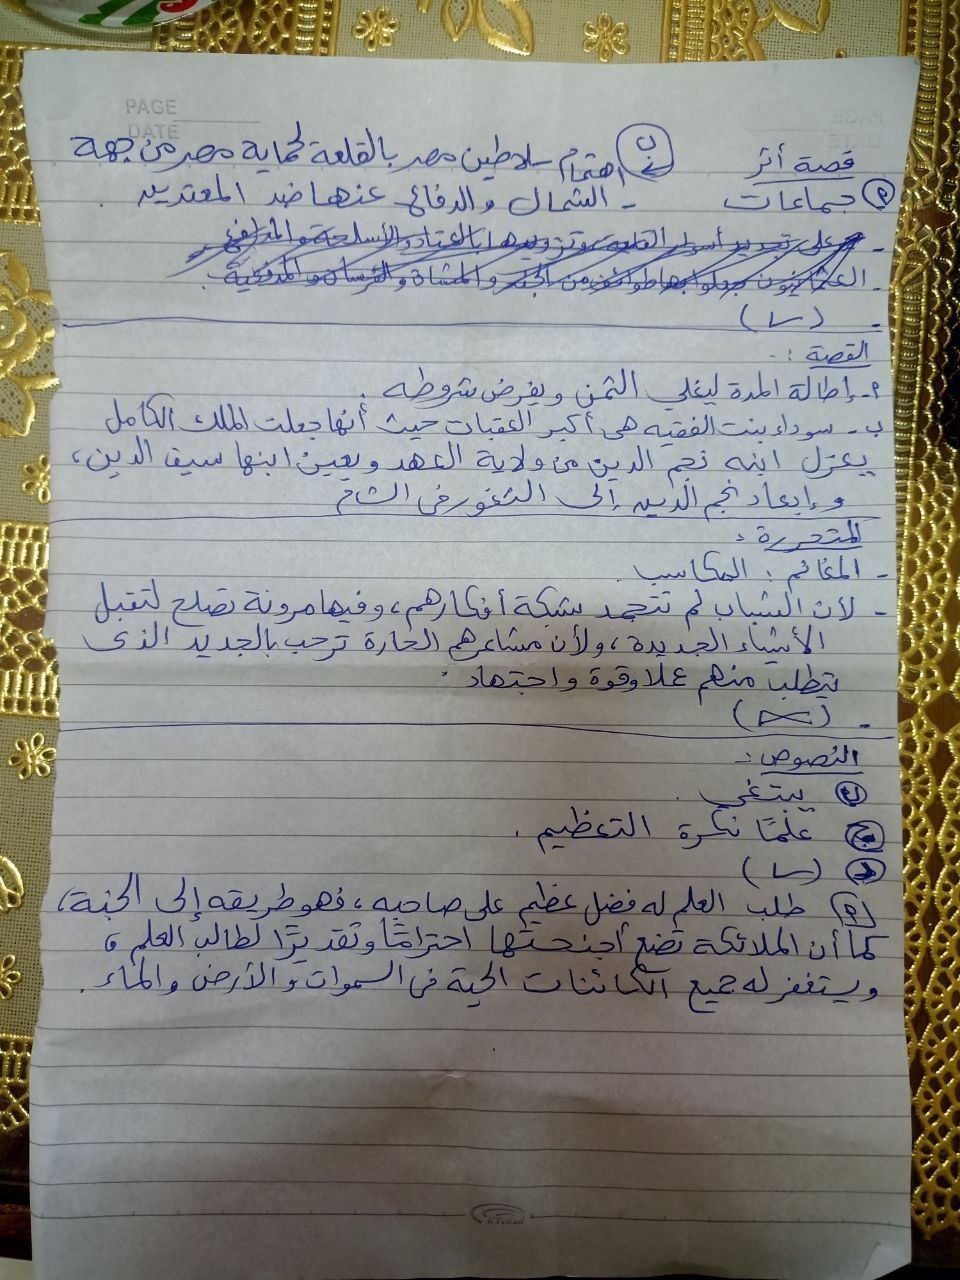 PAGE
DATE
قصة أثر
(أ) جماعات
(ب) اهتمام سلاطين مصر بالقلعة لحماية مصر من جهة
- الشمال والدفاع عنها ضد المعتدين .
- على تجديد أسوار القلعة وتزويدها بالعتاد والأسلحة والمدافع
- العثمانيون جعلوا بها طوائف من الجند والمشاة والفرسان والمدفعية .
- (✓)
القصة :-
أ - إطالة المدة ليغلي الثمن ويفرض شروطه .
ب - سوداء بنت الفقيه هى أكبر العقبات حيث أنها جعلت الملك الكامل
يعزل ابنه نجم الدين من ولاية العهد ويعين ابنها سيف الدين،
وإبعاد نجم الدين إلى الثغور فى الشام
المتحررة :
- المغانم : المكاسب .
- لأن الشباب لم تتجمد شبكة أفكارهم، وفيها مرونة تصلح لتقبل
الأشياء الجديدة، ولأن مشاعرهم الحارة ترحب بالجديد الذى
يتطلب منهم عملا وقوة واجتهاد .
- (✗)
النصوص :-
(ب) يبتغي .
(ج) علمًا نكرة التعظيم .
(د) (✓)
(أ) طلب العلم له فضل عظيم على صاحبه، فهو طريقه إلى الجنة،
كما أن الملائكة تضع أجنحتها احترامًا وتقديرًا لطالب العلم،
ويستغفر له جميع الكائنات الحية فى السموات والأرض والماء .